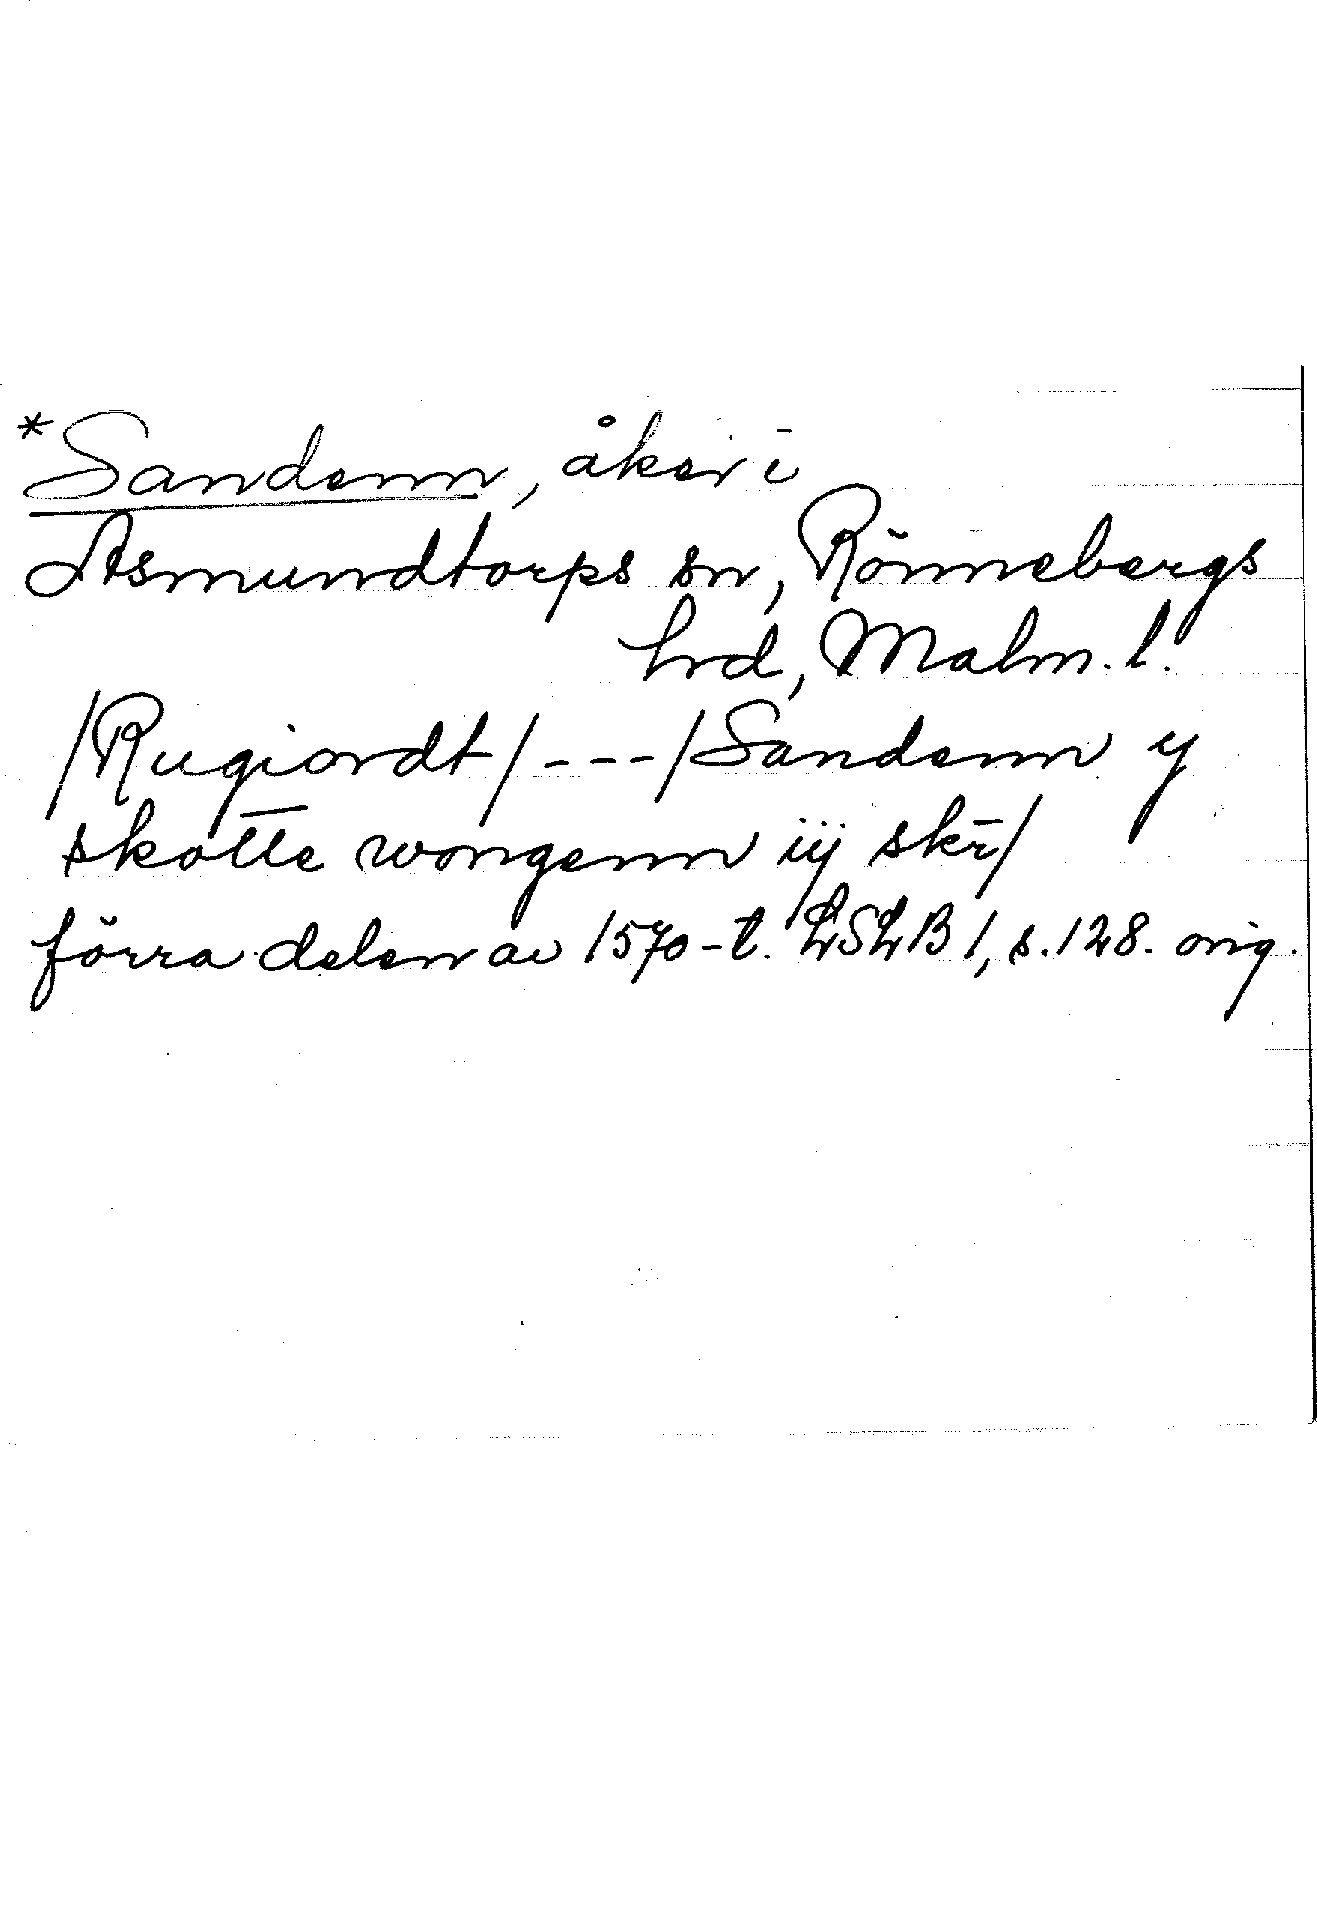 *Sandenn, åker i
Asmundtorps sn, Rönnebergs
hrd, Malm. l.
/Rugiordt/---/Sandenn y
skotte wongenn iij skr̄/
förra delen av 1570-t. LSLB 1, s. 128. orig.